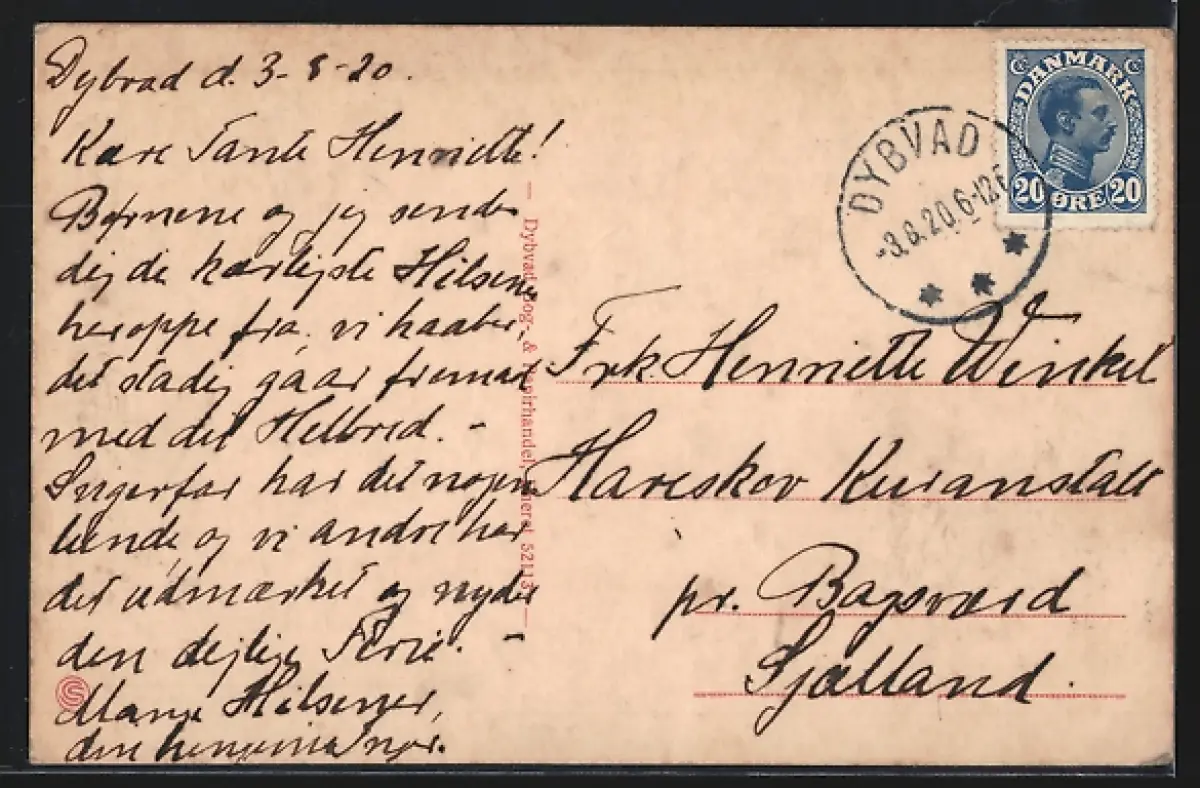 Dybvad d. 3-8-20.
Kære Tante Henriette!
Børnene og jeg sender
dig de kærligste Hilsener
heroppe fra. vi haaber,
det stadig gaar fremad
med det Helbred. -
Svigerfar har det nogen
lunde, og vi andre har
det udmærket og nyder
den dejlige Ferie. -
Mange Hilsener,
den
Dybvad Bog- & Papirhandel, Eneret 52113
DANMARK
20 ØRE 20
DYBVAD
-3.8.20. 6-12F
Frk. Henriette Winkel
Hareskov Kuranstalt
pr. Bagsværd
Sjælland.